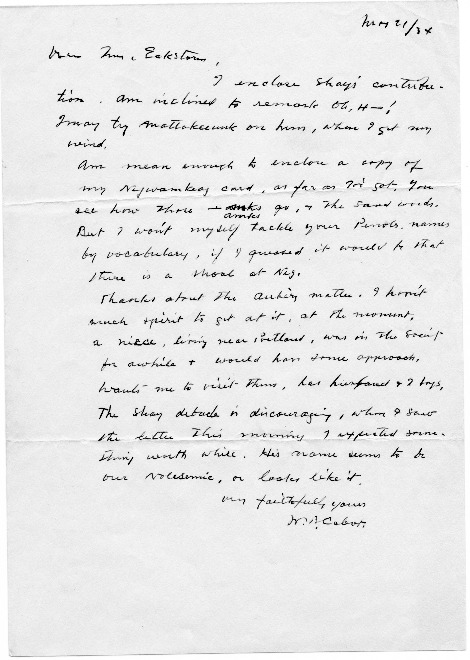 Nov 21/34
Dear Mrs. Eckstorm,
I enclose Shay's contribu-
tion. Am inclined to remark Oh, H—!
I may try Mattakeeunk on him, when I get my
wind.
Am mean enough to enclose a copy of
my card, as far as I'd got. You
see how those amks go, & the sand words.
But I won't myself tackle your Penobs. names
by vocabulary, if I guessed it would be that
there is a shoal at Nig.
Thanks about the matter. I haven't
much spirit to get at it, at the moment,
a niece, living near Portland, was in the Society
for awhile & would have some approach,
Wants me to visit them, has husband & 2 boys,
The Shay debacle is discouraging, when I saw
the letter this morning I expected some-
thing worth while. His name seems to be
our, or looks like it.
Very faithfully yours
W. B. Cabot.